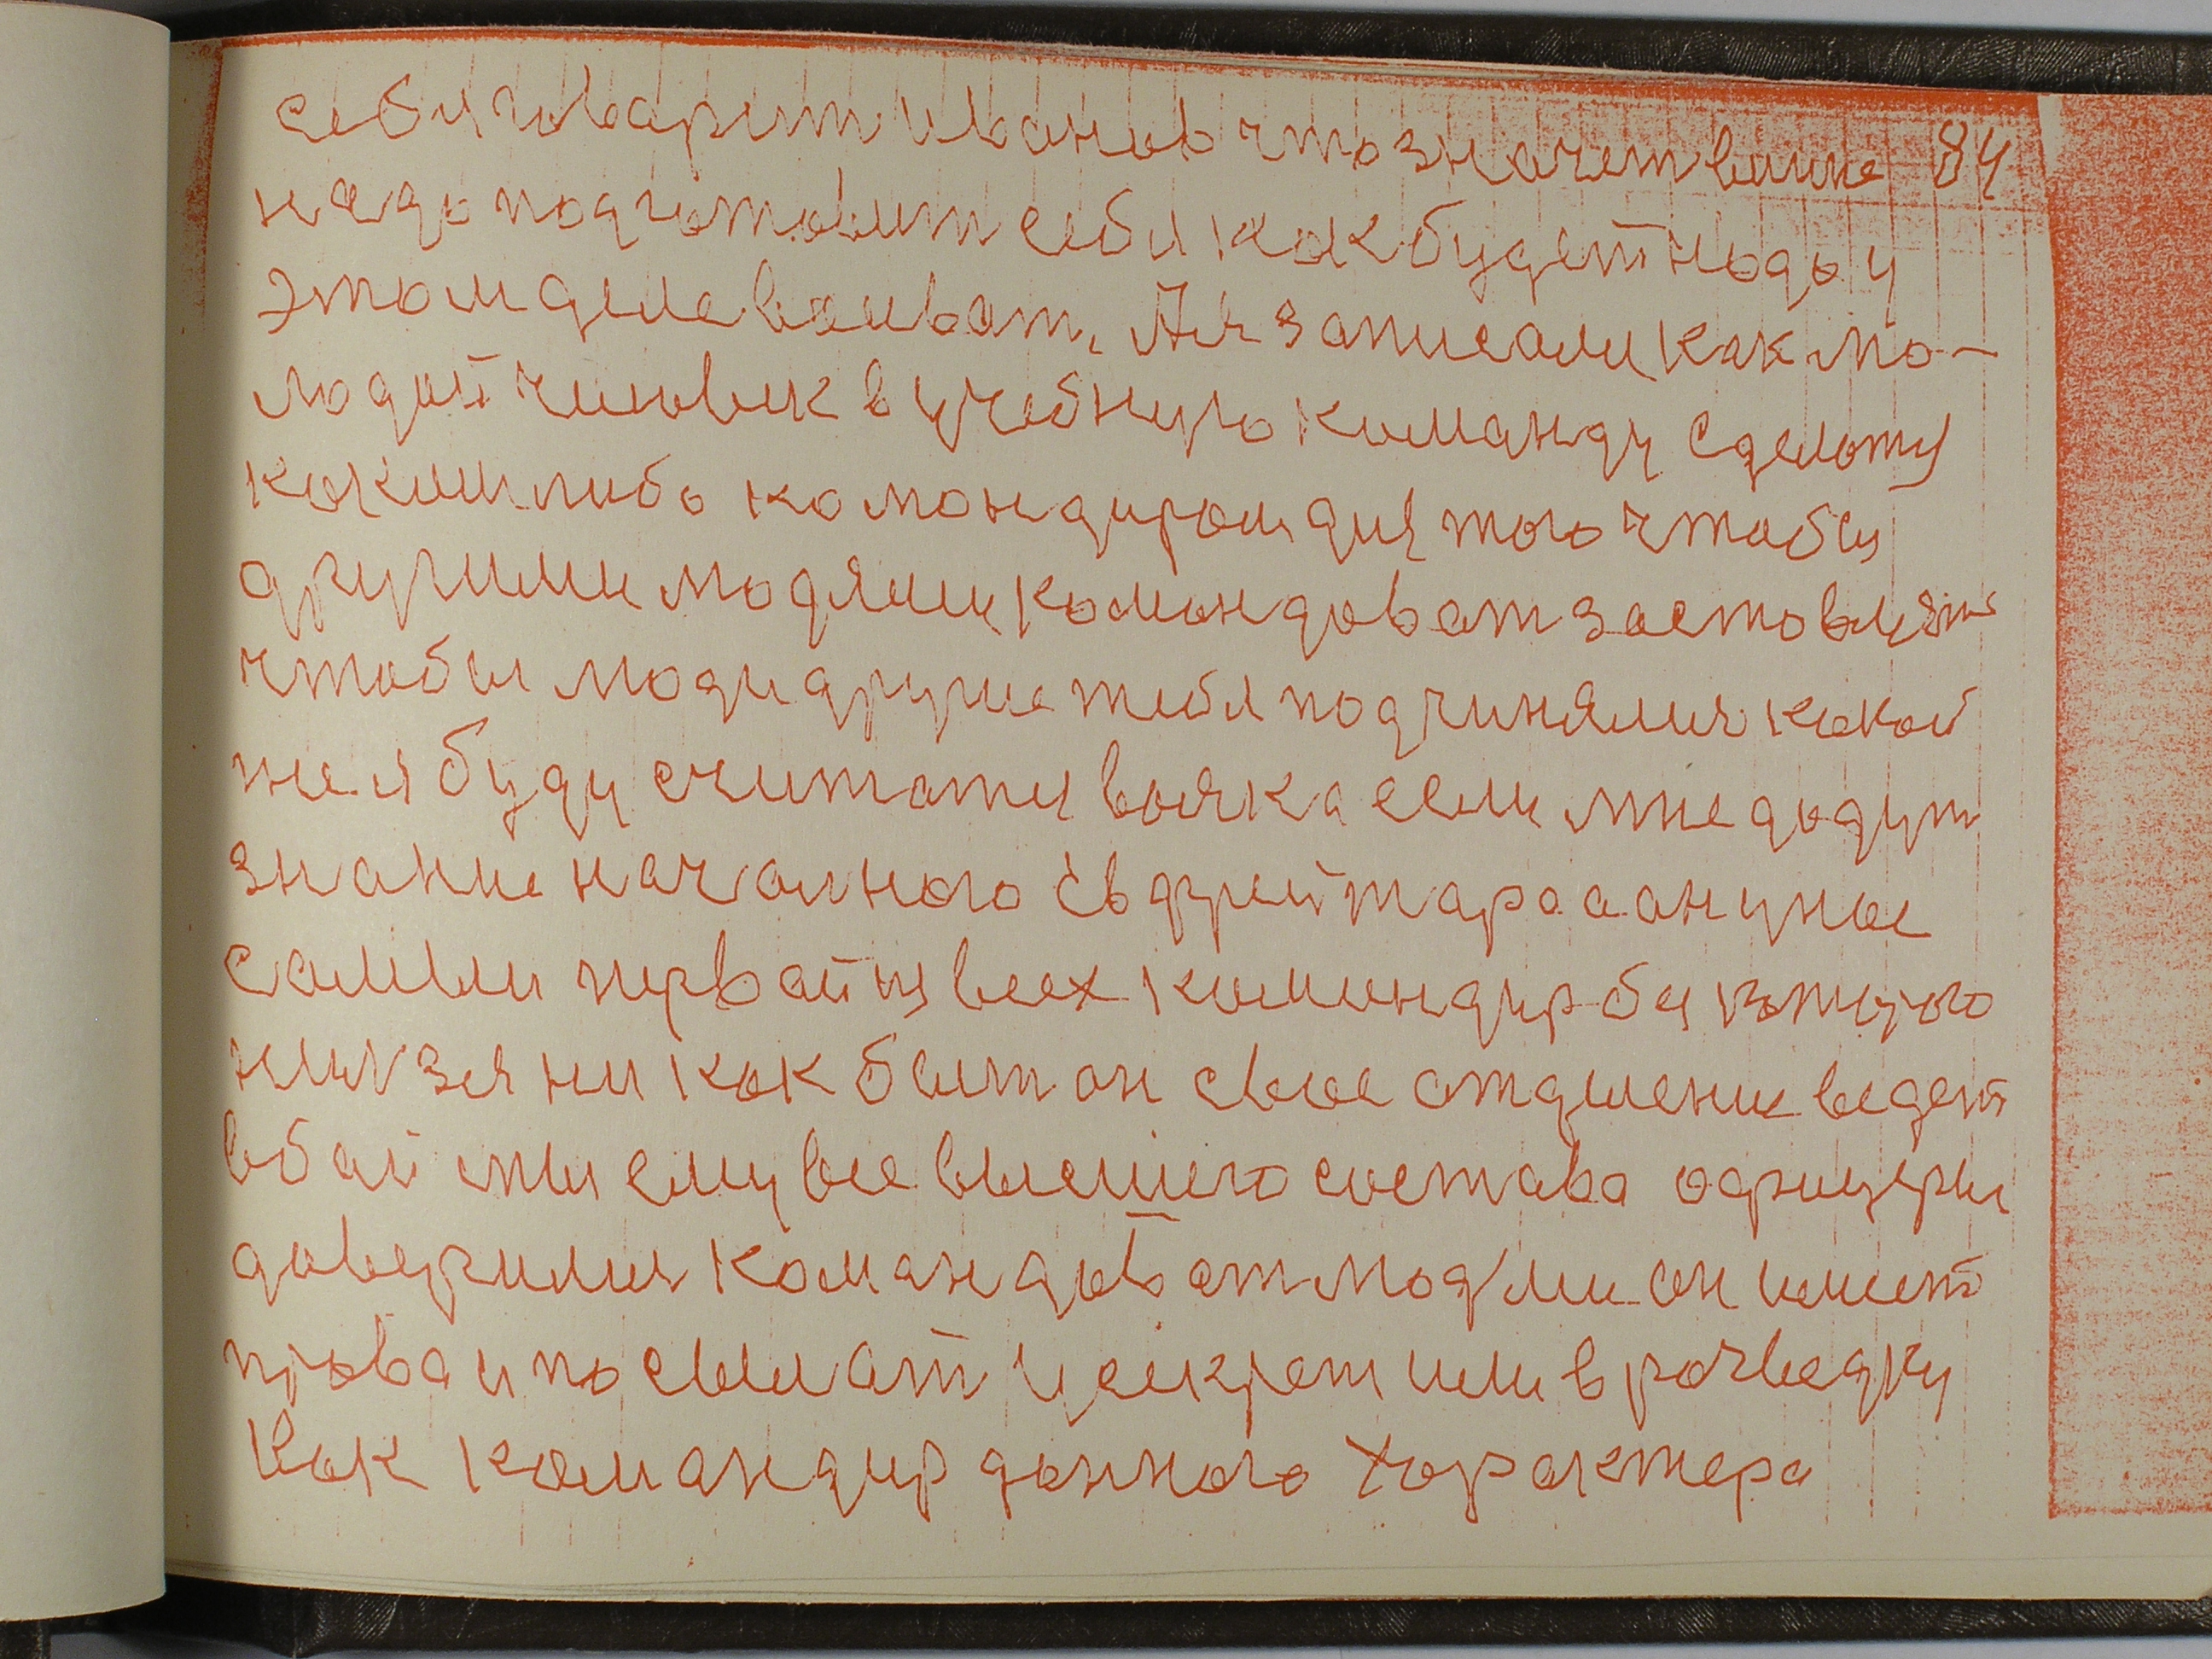 себя говарит Иванов что значет вийне 84
надо подготовит себя как будет надо у
этом деле воиват, Ия записали как мо-
лодой чиловек в учебную команду сделоту
каким либо командиром для того чтобы
другими людями командоват заставлят
чтобы люди другие тебя подчинялися какой
же я буду считаты вояка если мне дадут
знание началного евфрейтара а он у нас
самыи первай из всех командир без
нильзя ни как быт он свое отделение ведет
в бай мы ему все высшего состава офицеры
доверилися командоват людми он имеет
права и посылат у секрет или в рачведку
Как командир данного характера